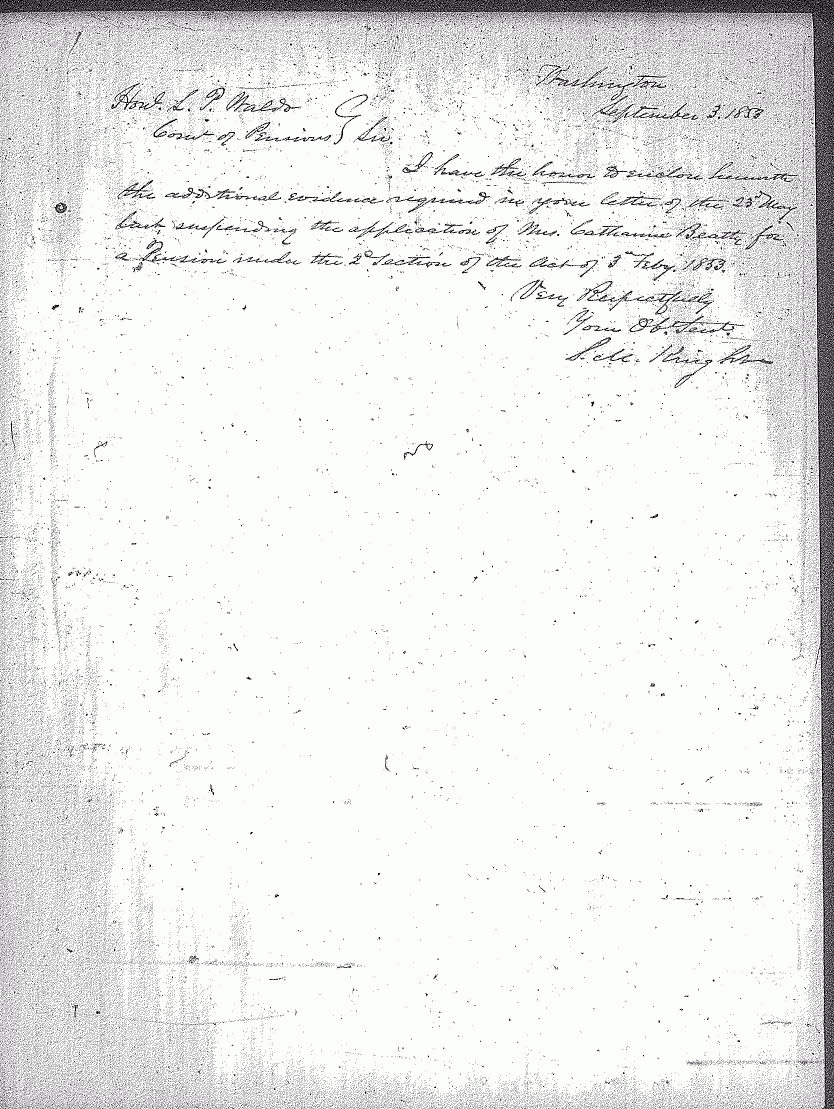 Washington
September 3. 1853
Hon.l L. P. Waldo
Com.r of Pensions } Sir.
I have the honor to enclose herewith
the additional evidence required in your letter of the 23d May
last suspending the application of Mrs. Catharine Beatty for
a Pension under the 2d Section of the Act of 3d Feby. 1853.
Very Respectfully
Your Ob. Servt.
S. M. Knight